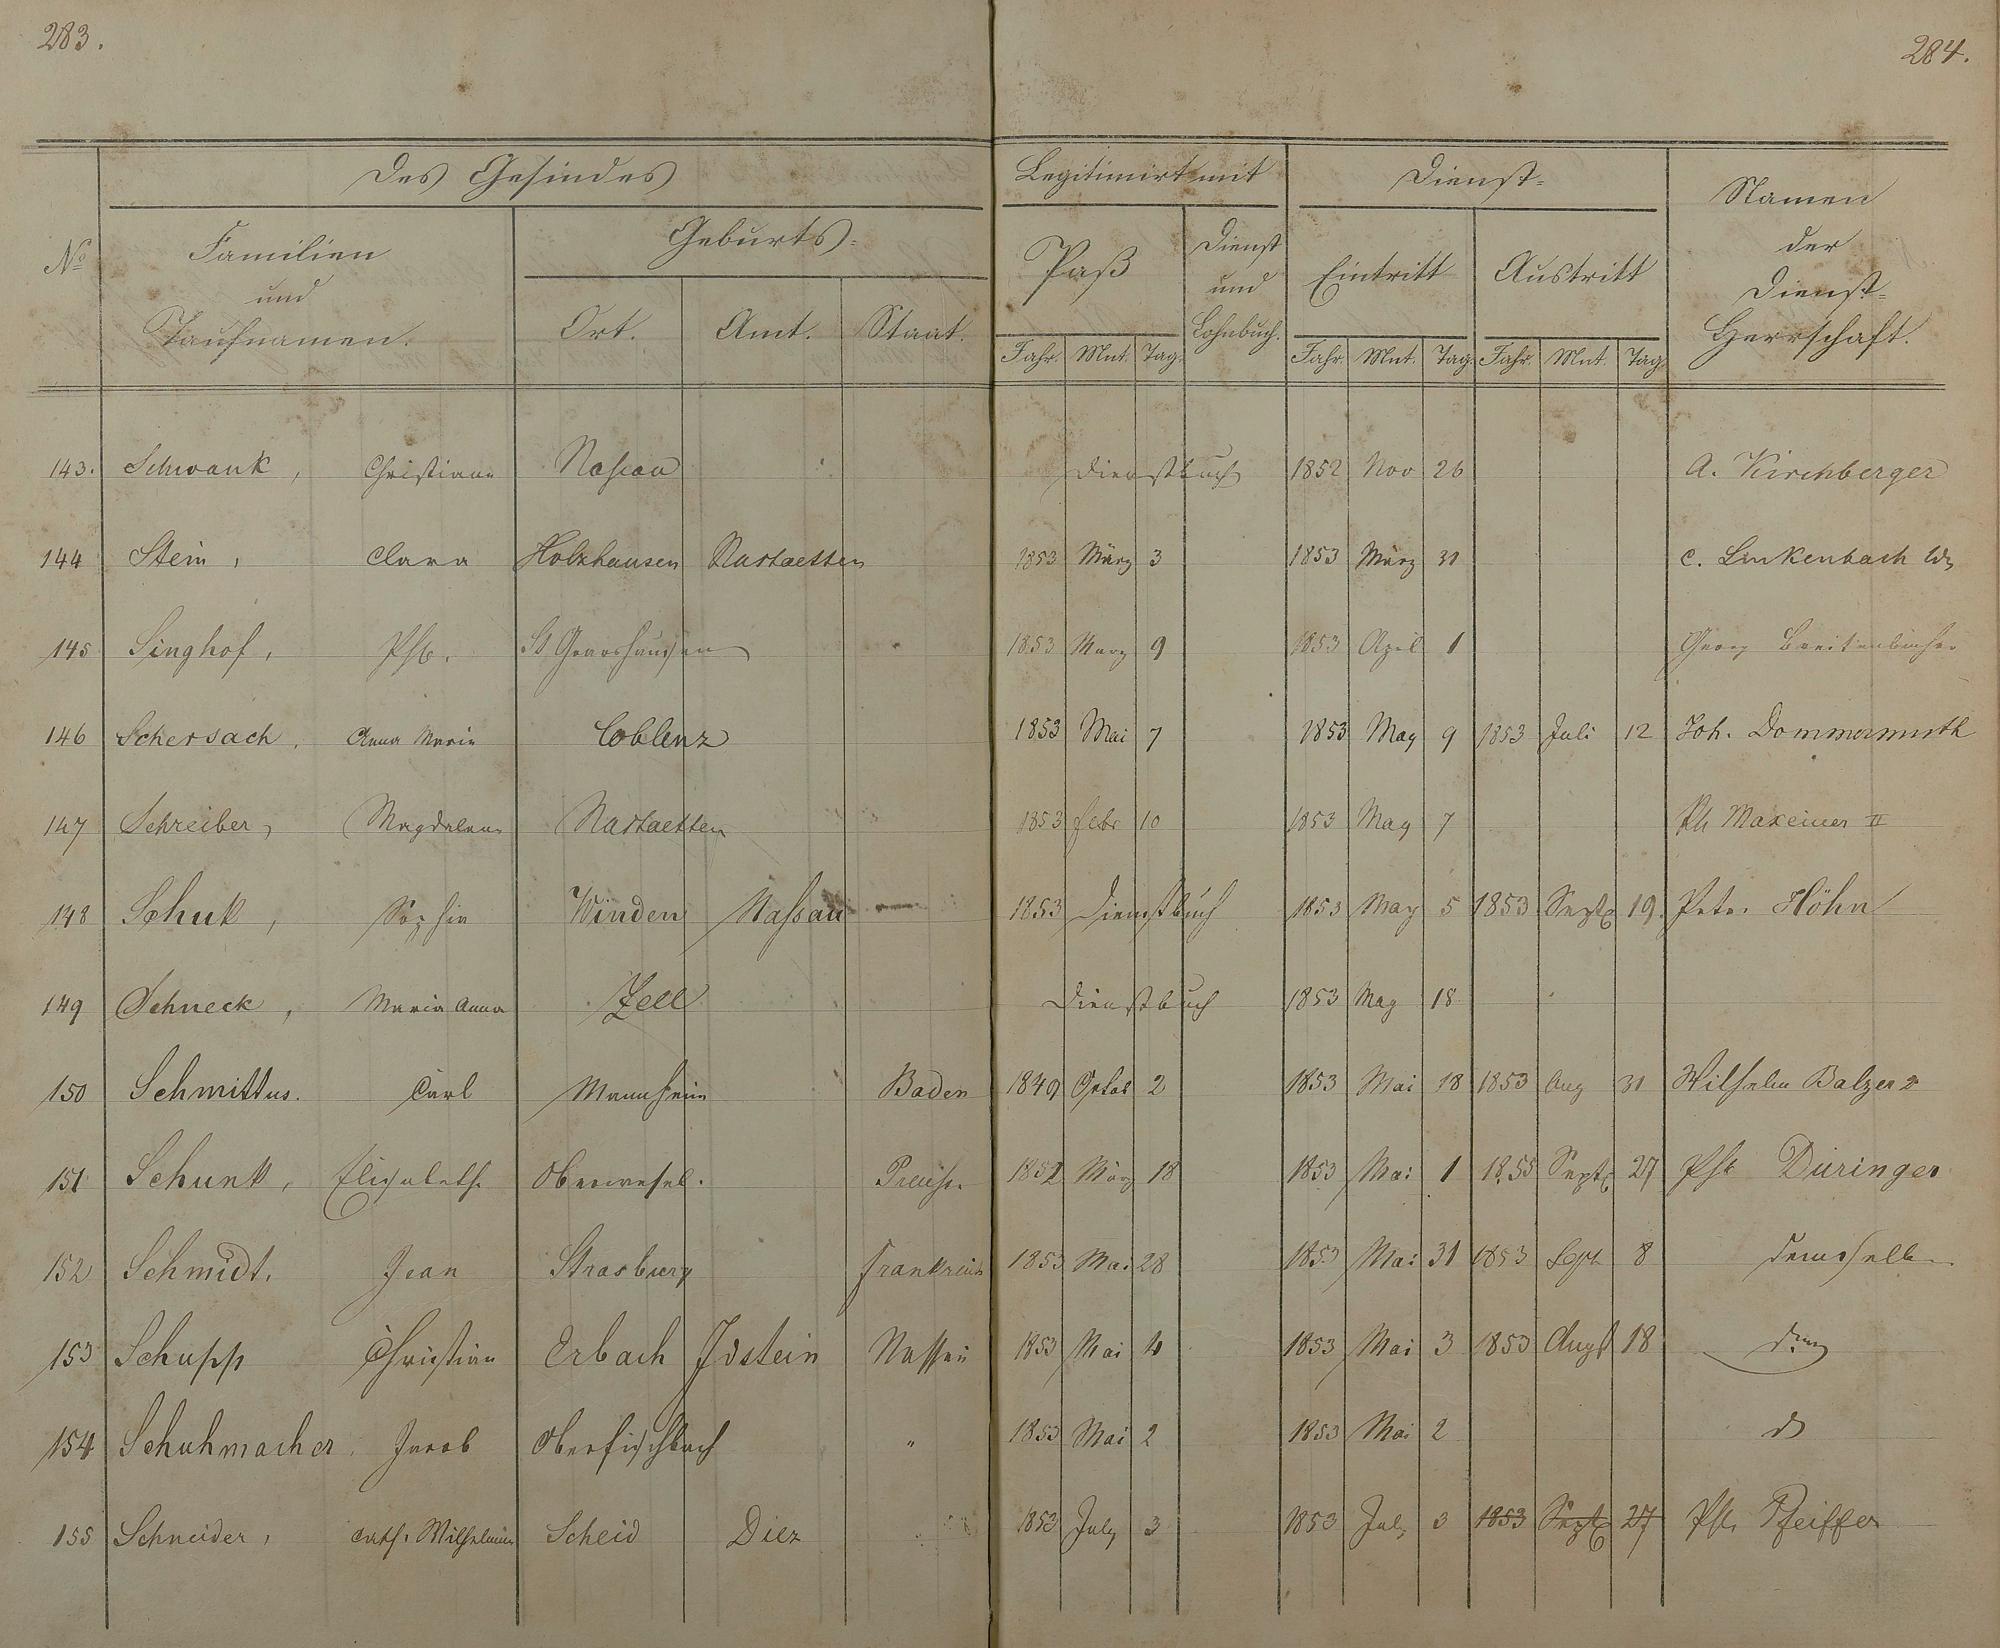 283.
284.
Des Gesindes
Legitimirt mit
Dienst-
Namen der Dienst-Herrschaft.
No
Familien und Taufnamen.
Geburts-
Paß
Dienst und Lohnbuch.
Eintritt
Austritt
Ort. Amt. Staat.
Jahr. Mnt. Tag. Jahr. Mnt. Tag. Jahr. Mnt. Tag.
143. Schwank, Christiane Nassau Dienstbuch 1852 Nov 26 A. Kirchberger
144 Stein, Clara Holzhausen Nastaetten 1853 März 3 1853 März 31 C. Linkenbach
145 Singhof, Ph. St Goarshausen 1853 März 9 1853 April 1 Georg Breitenbücher
146 Schersach, Anna Maria Coblenz 1853 Mai 7 1853 May 9 1853 Juli 12 Joh. Dommermuth
147 Schreiber, Magdalena Nastaetten 1853 Febr 10 1853 May 7 Ph Maxeiner II
148 Schuk, Sophie Winden Nassau 1853 Dienstbuch 1853 May 5 1853 Sept 19. Peter Höhn
149 Schneck, Maria Anna Zell Dienstbuch 1853 May 18
150 Schmittus. Carl Mannheim Baden 1849 Octob 2 1853 Mai 18 1853 Aug 31 Wilhelm Balzer 2
151 Schunk, Elisabeth. Oberwesel. Preuss. 1852 März 18 1853 Mai 1 1853 Sept 27 Ph Düringer
152 Schmidt. Jean Strasburg Frankreich 1853 Mai 28 1853 Mai 31 1853 Sept 8 Demselben
153 Schupp Christian Erbach Idstein Nassau 1853 Mai 4 1853 Mai 3 1853 Augst 18
154 Schuhmacher. Jacob Oberfischbach " 1853 Mai 2 1853 Mai 2 d
155 Schneider, Cath. Wilhelmine Scheid Diez 1853 July 3 1853 July 3 1853 Sept 27 Ph. Pfeiffer